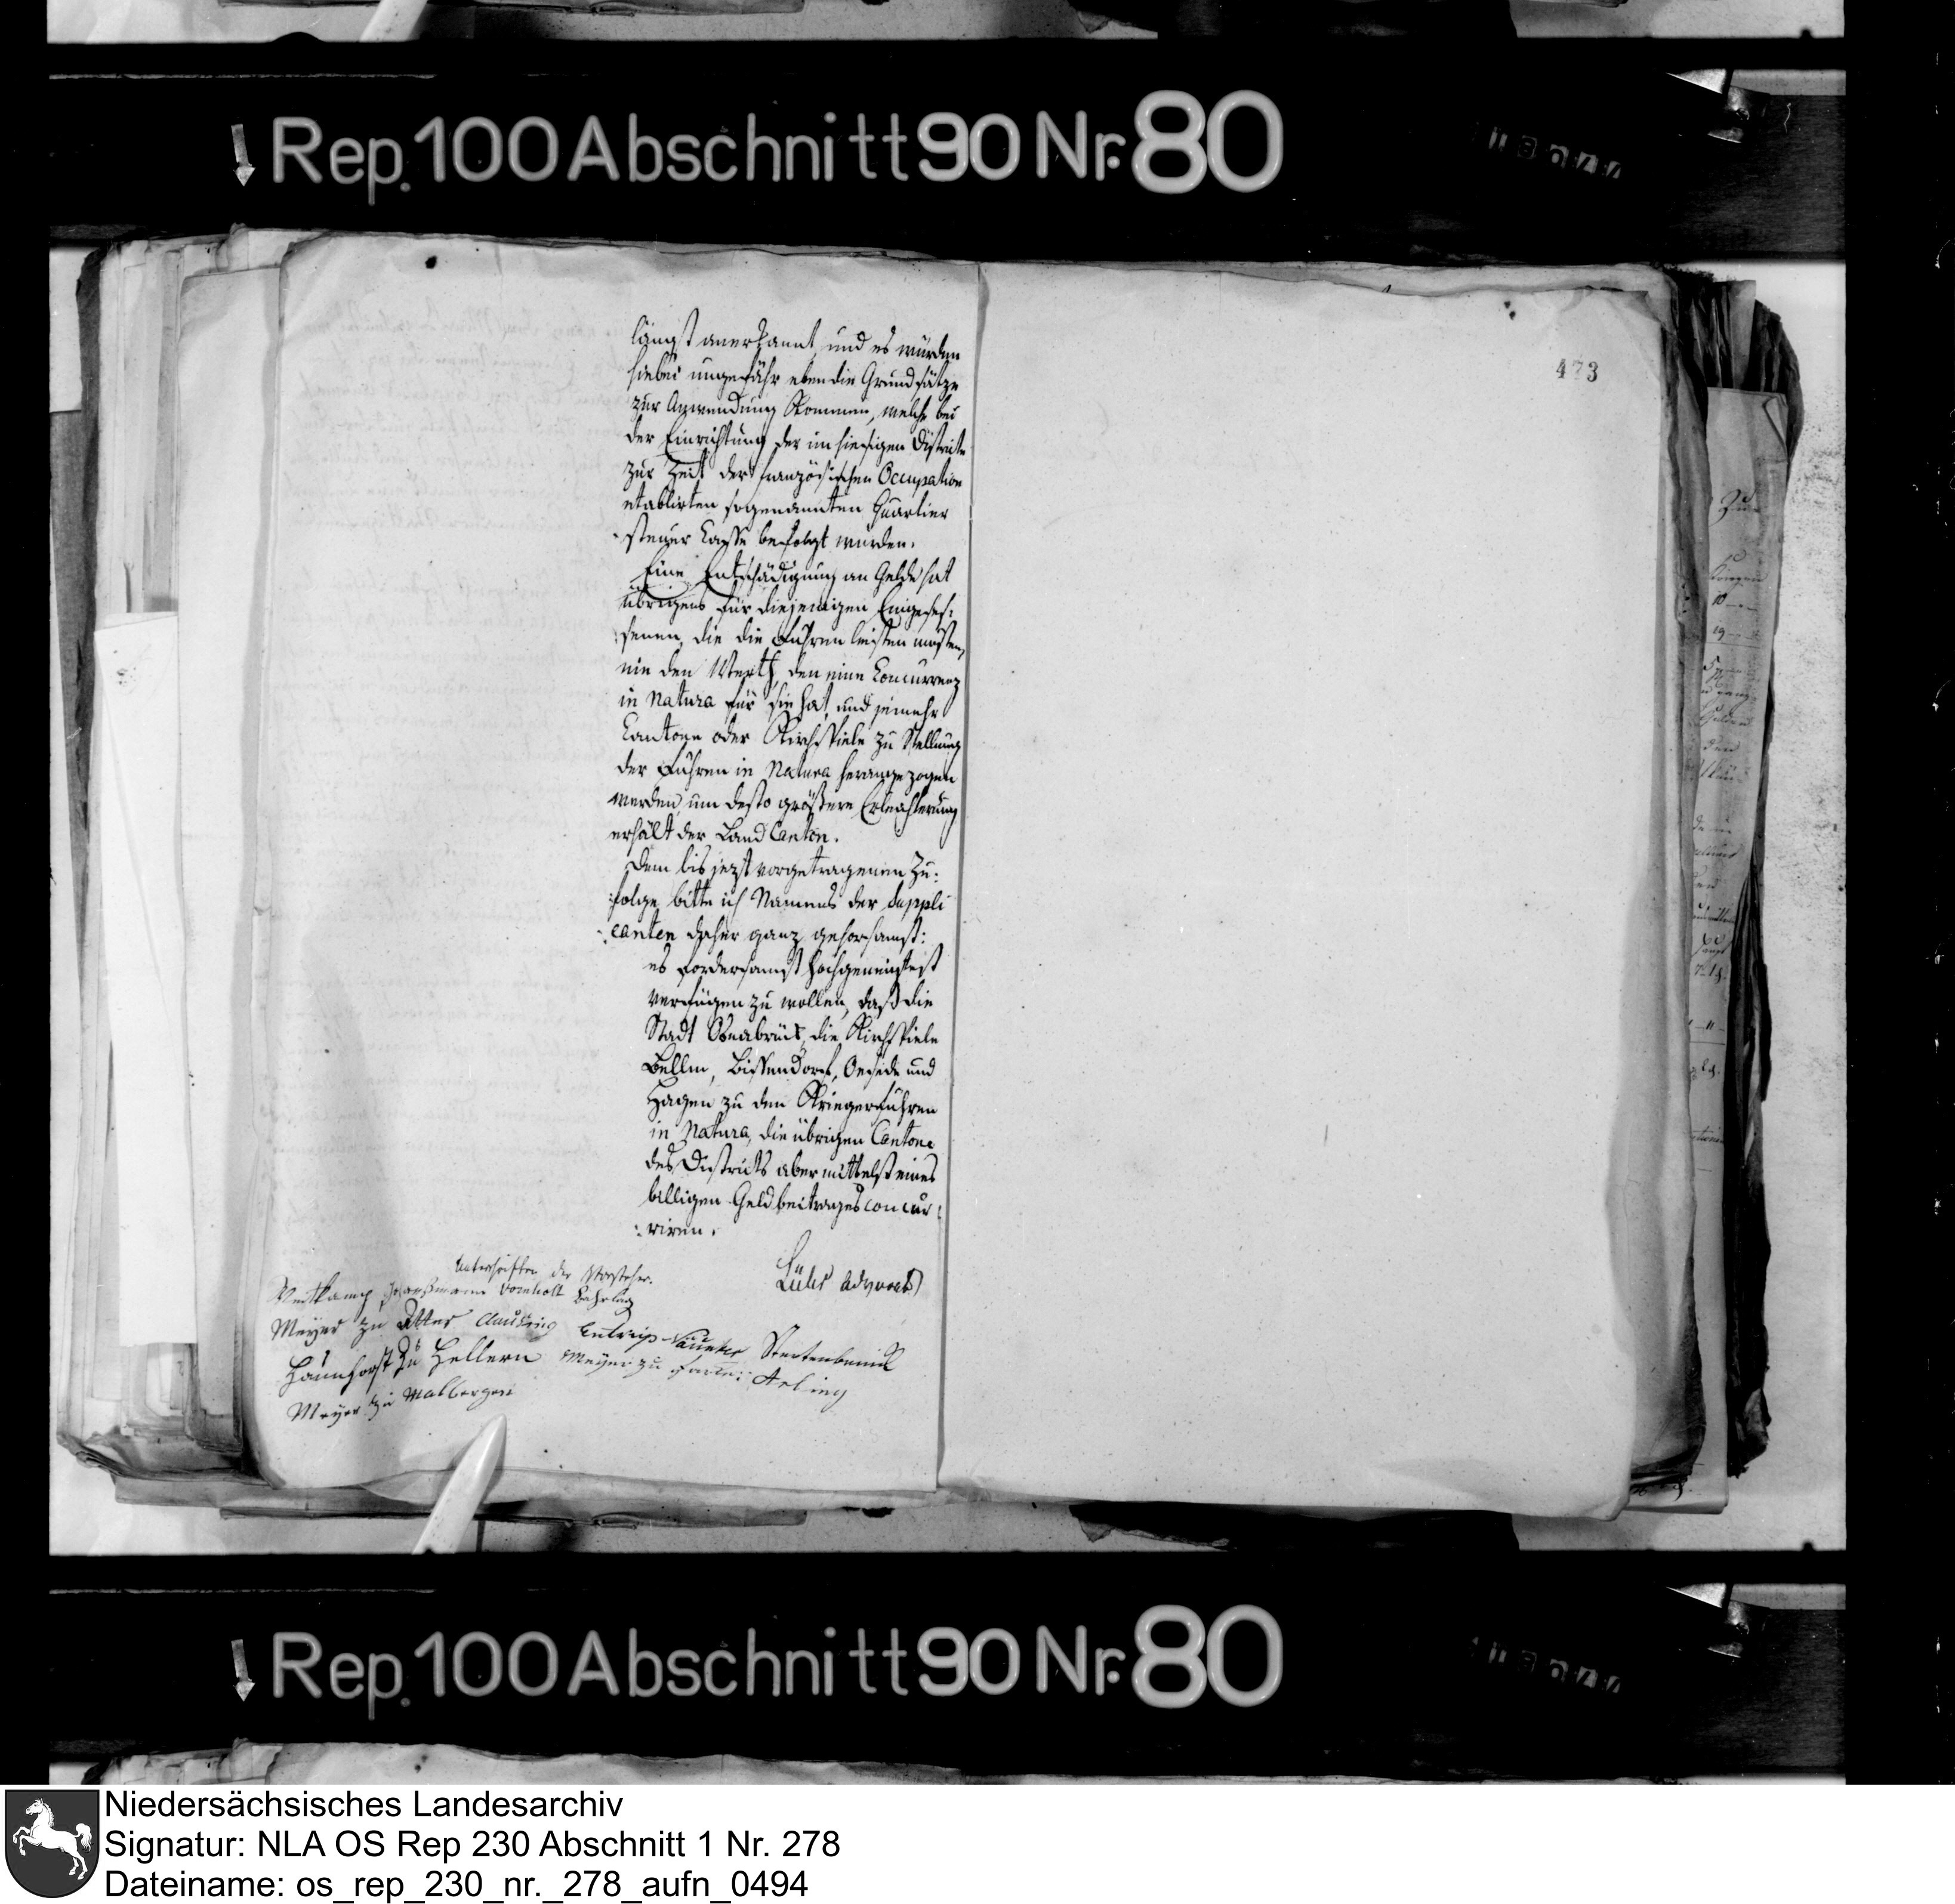 Rep. 100 Abschnitt 90 Nr. 80
473
längst anerkannt, und es würden
hiebei ungefähr eben die Grundsätze
zur Anwendung kommen, welche bei
der Einrichtung der im hiesigen Districte
zur Zeit der französischen Occupation
etablirten sogenannten Quartier
steuer Casse befolgt wurden.
Eine Entschädigung an Gelde hat
übrigens für diejenigen Eingeses:
:senen, die die Fuhren leisten müssen,
nie den Werth, den eine Concurrenz
in Natura für sie hat, und jemehr
Cantone oder Kirchspiele zu Stellung
der Fuhren in Natura herangezogen
werden, um desto größere Erleichterung
erhält der Land Canton.
Dem bis jezt vorgetragenen Zu:
:folge bitte ich Namens der Suppli
:canten daher ganz gehorsamst:
es fordersamst hochgeneigtest
verfügen zu wollen, daß die
Stadt Osnabrück, die Kirchspiele
Bellm, Bissendorf, Oesede und
Hagen zu den Kriegerfuhren
in Natura, die übrigen Cantone
des Districts aber mittelst eines
billigen Geldbeitrages concur:
:riren.
Lühr Advocat
Unterschriften der Vorsteher.
Meyer zu
Haunhorst zu Hellern Meyer zu
Meyer zu Malbergen
Rep. 100 Abschnitt 90 Nr. 80
Niedersächsisches Landesarchiv
Signatur: NLA OS Rep 230 Abschnitt 1 Nr. 278
Dateiname: os_rep_230_nr._278_aufn_0494